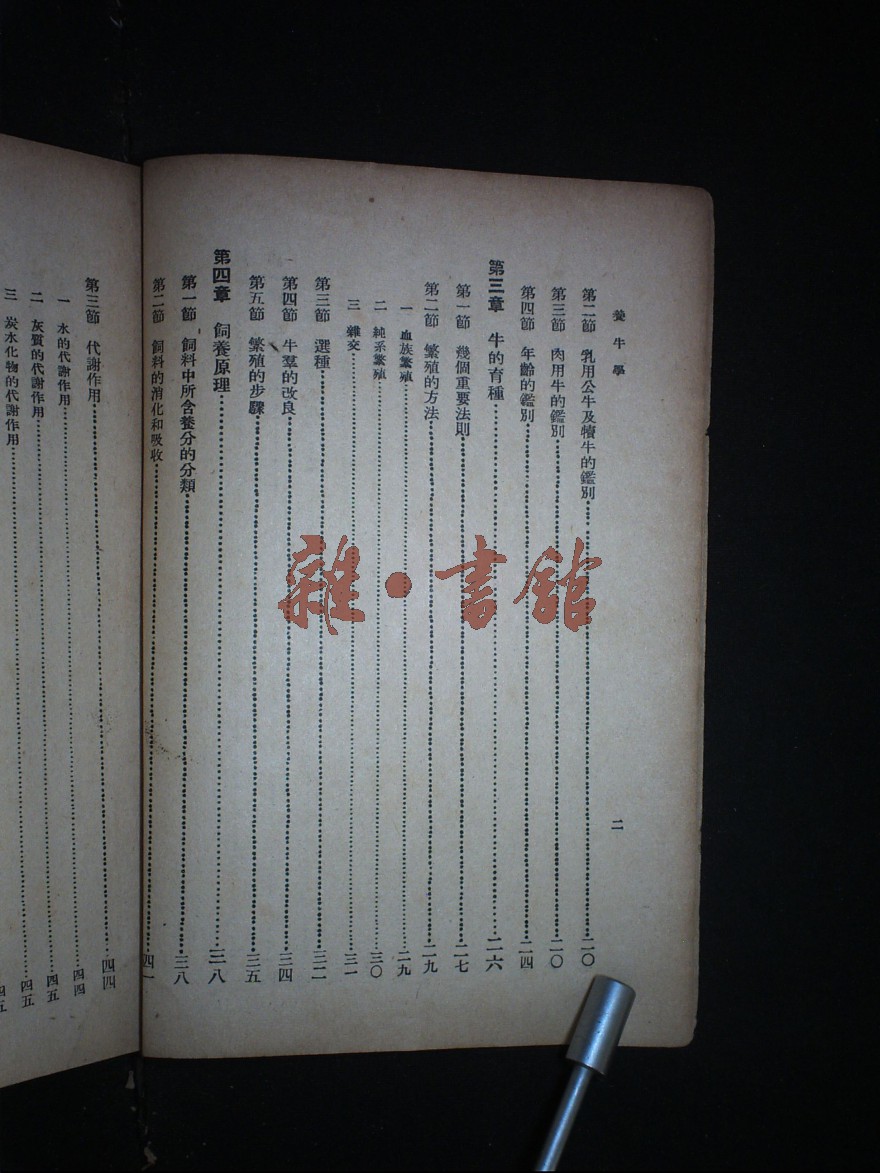 養牛學
二
第二節 乳用公牛及犢牛的鑑別……二〇
第三節 肉用牛的鑑別……二〇
第四節 年齡的鑑別……二四
第三章 牛的育種……二六
第一節 幾個重要法則……二七
第二節 繁殖的方法……二九
一 血族繁殖……二九
二 純系繁殖……三〇
三 雜交……三一
第三節 選種……三二
第四節 牛羣的改良……三四
第五節 繁殖的步驟……三五
第四章 飼養原理……三八
第一節 飼料中所含養分的分類……三八
第二節 飼料的消化和吸收……四一
第三節 代謝作用……四四
一 水的代謝作用……四四
二 灰質的代謝作用……四五
三 炭水化物的代謝作用
四五
四五
雜·書館